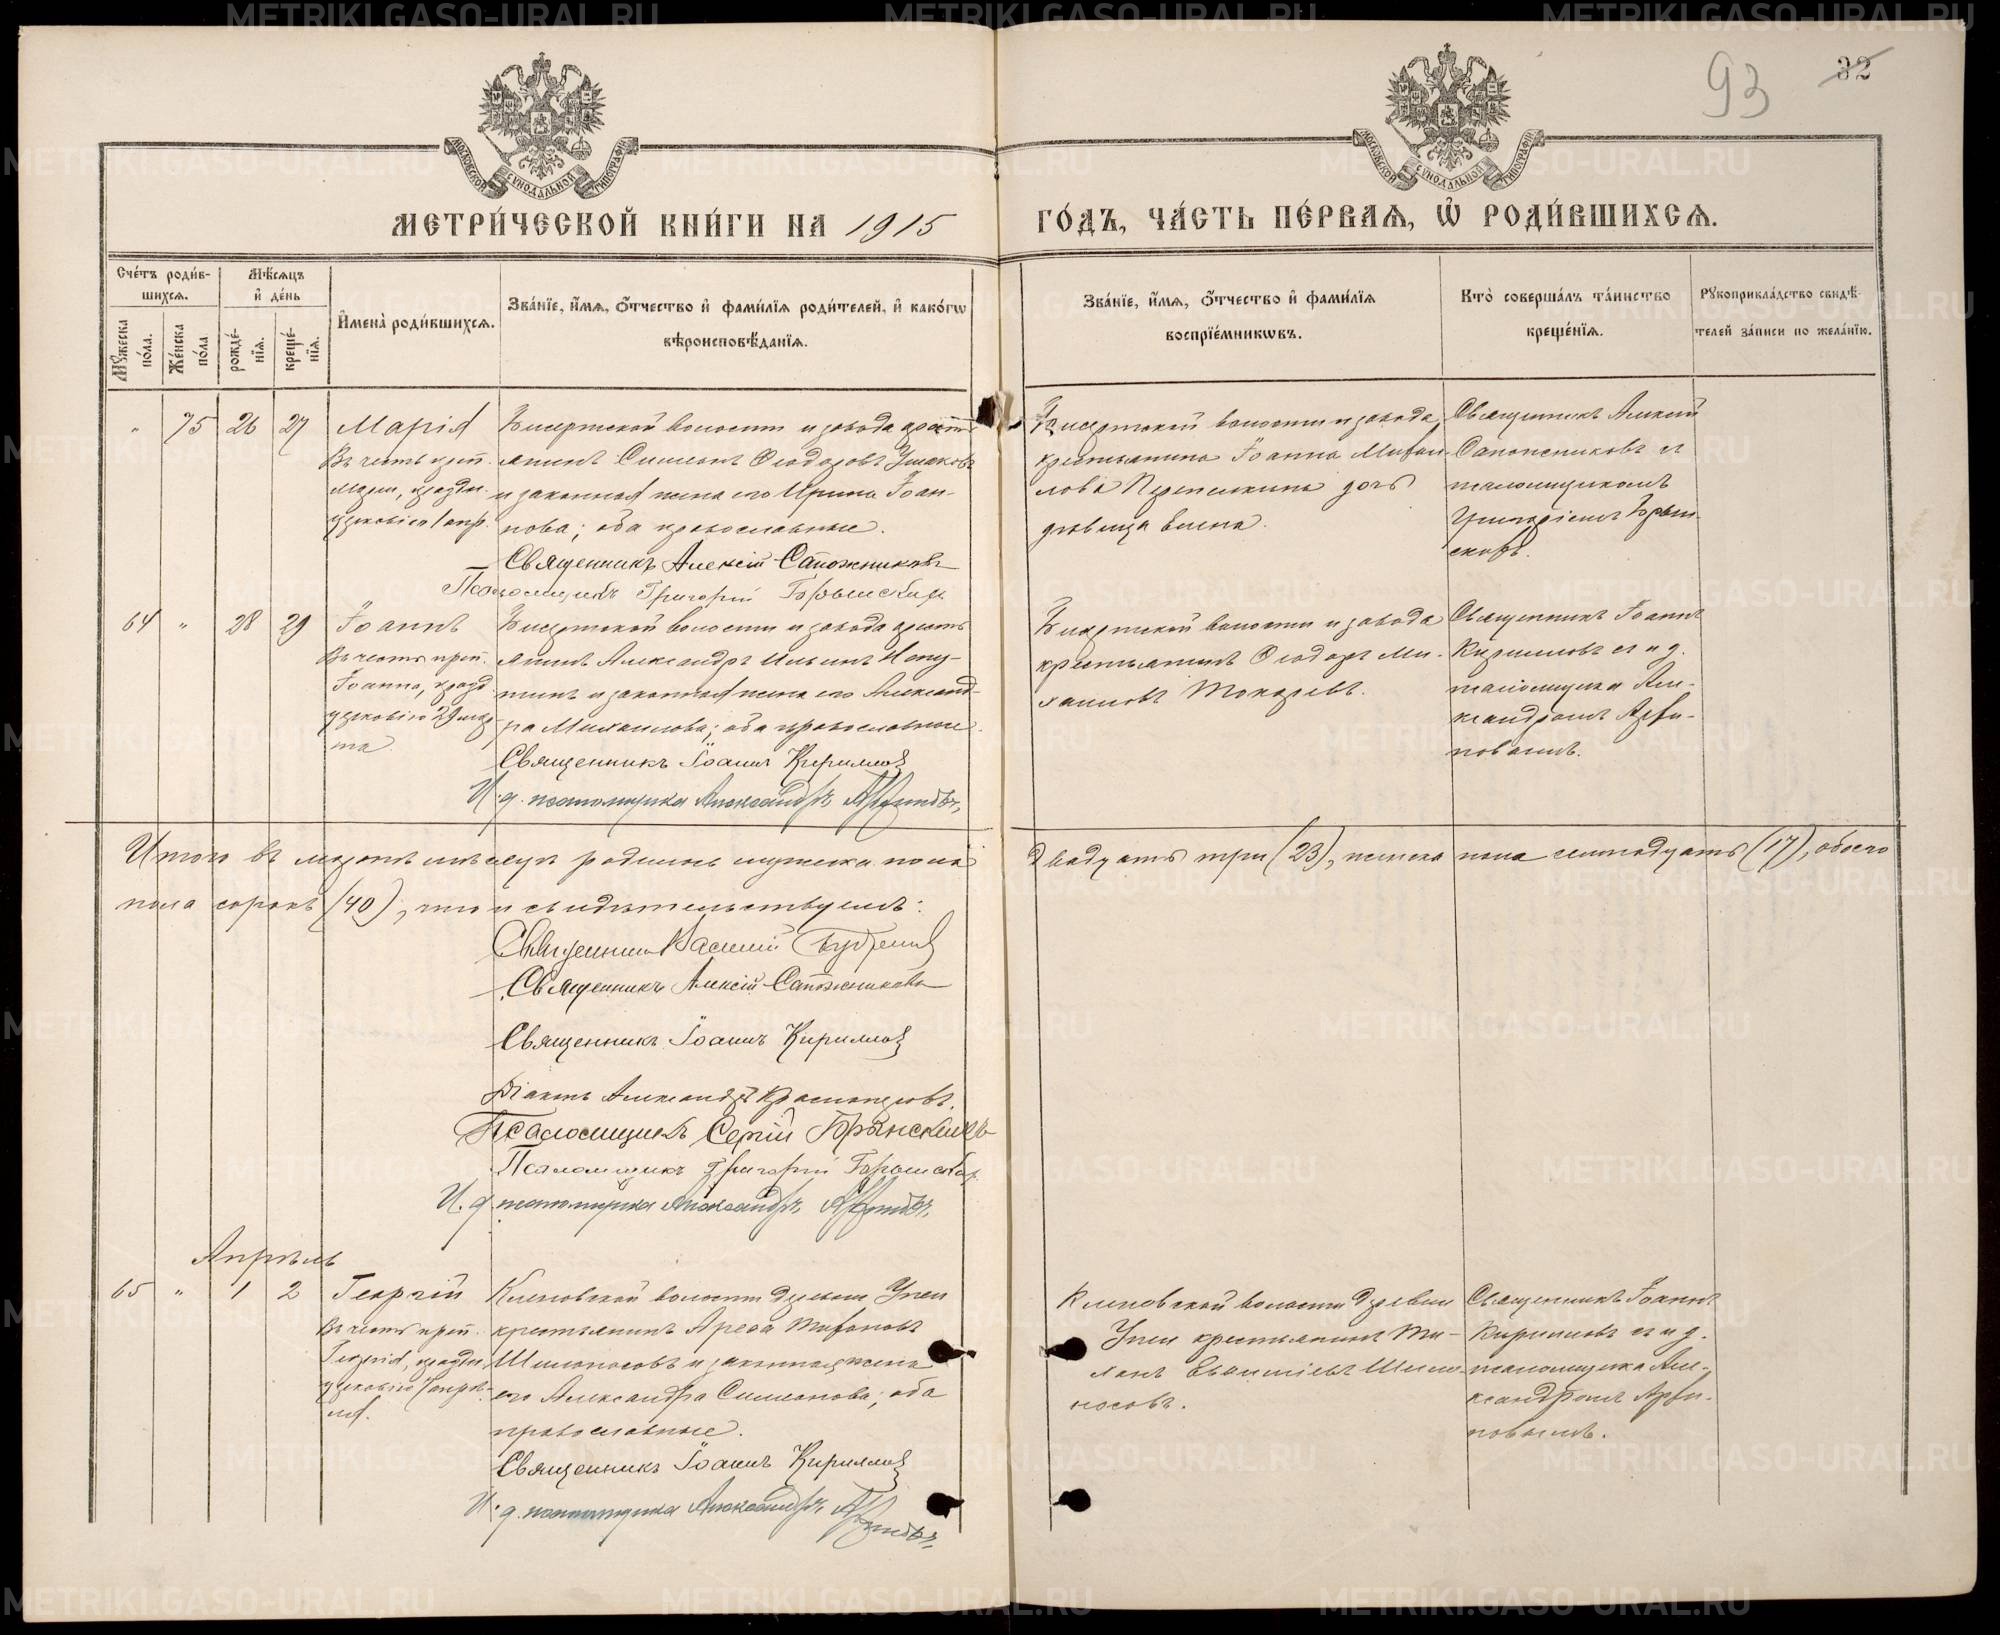 93
32
МОСКОВСКОЙ СѴНОДАЛЬНОЙ ТИПОГРАФІИ
МОСКОВСКОЙ СѴНОДАЛЬНОЙ ТИПОГРАФІИ
МЕТРИ́ЧЕСКОЙ КНИ́ГИ НА 1915
ГО́ДЪ, ЧА́СТЬ ПЕ́РВАѦ, Ѡ҆ РОДИ́ВШИХСѦ.
Сче́тъ роди́в-
шихсѧ.
Мꙋ́жеска
по́ла.
Же́нска
по́ла
Мѣ́сѧцъ
и҆ де́нь
рожде́-
нїѧ.
креще́-
нїѧ.
И҆мена̀ роди́вшихсѧ.
Зва́нїе, и҆́мѧ, ѻ҆́тчество и҆ фами́лїѧ роди́телей, и҆ како́гѡ
вѣроисповѣ́данїѧ.
Зва́нїе, и҆́мѧ, ѻ҆́тчество и҆ фами́лїѧ
воспрїе́мникѡвъ.
Кто̀ соверша́лъ та́инство
креще́нїѧ.
Рꙋкоприкла́дство свидѣ́-
телей за́писи по жела́нїю.
" 75 26 27 Марія
Въ честь преп.
Маріи, праздн.
церковію 1 апр.
Бисертской волости и завода кресть-
янинъ Симеонъ Ѳеодоровъ Ушаковъ
и законная жена его Ирина Іоан-
нова; оба православные.
Священникъ Алексій Сапожниковъ
Псаломщикъ Григорій
Бисертской волости и завода
крестьянина Іоанна Михаи-
лова Перепелкина дочь
дѣвица Елена.
Священникъ Алексій
Сапожниковъ съ
псаломщикомъ
Григоріемъ
64 " 28 29 Іоаннъ
Въ честь преп.
Іоанна, празд.
церковію 29 мар-
та.
Бисертской волости и завода кресть-
янинъ Александръ Ильинъ
и законная жена его Александ-
ра Михаилова; оба православные.
Священникъ Іоаннъ Кирилловъ
И. д. псаломщика Александръ
Бисертской волости и завода
крестьянинъ Ѳеодоръ Ми-
хаиловъ Токаревъ.
Священникъ Іоаннъ
Кирилловъ съ и д.
псаломщика Але-
ксандромъ
Итого въ мартѣ мѣсяцѣ родилось мужеска пола
двадцать три (23), женска пола семнадцать (17), обоего
пола сорокъ (40), что и свидѣтельствуемъ:
Священникъ Василій
Священникъ Алексій Сапожниковъ
Священникъ Іоаннъ Кирилловъ
Діаконъ Александръ
Псаломщикъ Сергій Брянскихъ
Псаломщикъ Григорій
И. д. псаломщика Александръ
Апрѣль
65 " 1 2 Георгій
Въ честь преп.
Георгія, праздн.
церковію 7 апрѣ-
ля.
Кленовской волости деревни Упеи
крестьянинъ
Шилоносовъ и законная жена
его Александра Симеонова; оба
православные.
Священникъ Іоаннъ Кирилловъ
И. д. псаломщика Александръ
Кленовской волости деревни
Упеи крестьянинъ
Шило-
носовъ.
Священникъ Іоаннъ
Кирилловъ съ и д.
псаломщика Але-
ксандромъ